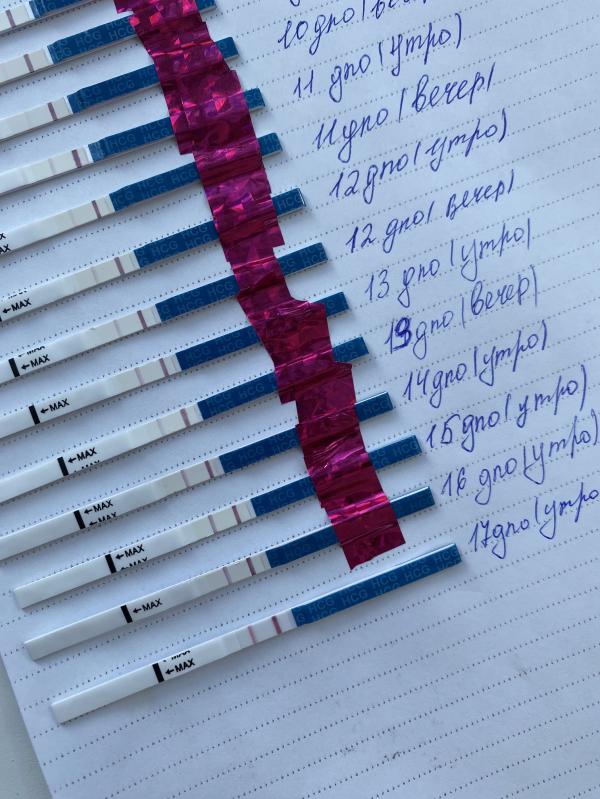 10 дпо (вече
11 дпо (утро)
11 дпо (вечер)
12 дпо (утро)
12 дпо (вечер)
13 дпо (утро)
13 дпо (вечер)
14 дпо (утро)
15 дпо (утро)
16 дпо (утро)
17 дпо (утро
HCG HCG HCG
HCG HCG HCG
←MAX
←MAX
←MAX
←MAX
←MAX
←MAX
←MAX
←MAX